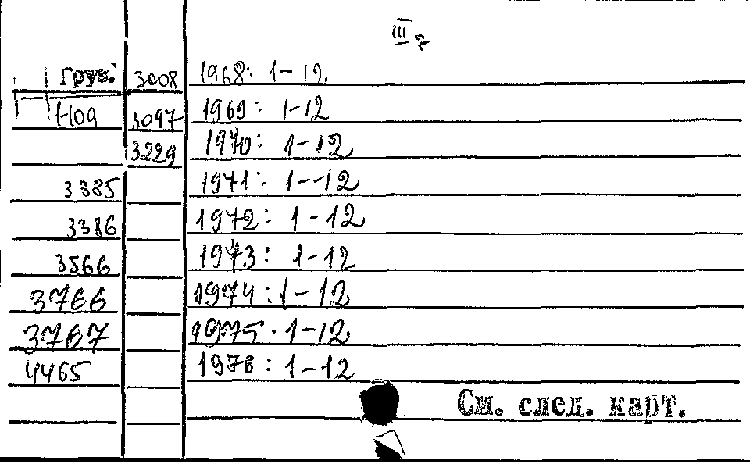 III
Груз. 3008 1968: 1-12
Н09 3097 1969: 1-12
3229 1970: 1-12
3385 1971: 1-12
3386 1972: 1-12
3566 1973: 1-12
3766 1974: 1-12
3767 1975. 1-12
4465 1976: 1-12
См. след. карт.